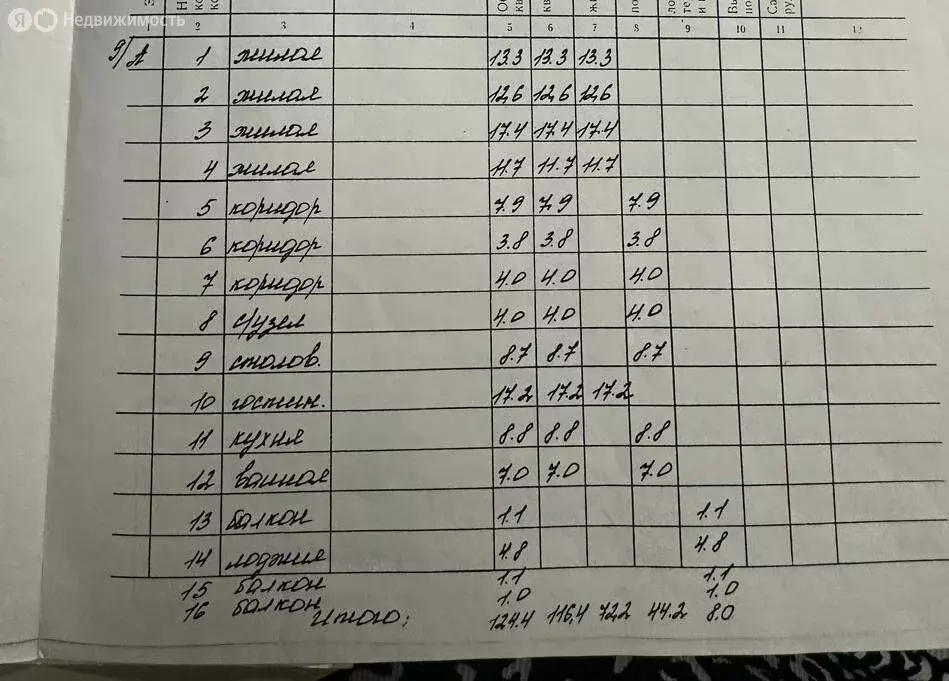 Я Недвижимость
1 2 3 4 5 6 7 8 9 10 11 12
9/ А 1 жилая 13.3 13.3 13.3
2 жилая 12,6 12,6 12,6
3 жилая 17.4 17.4 17.4
4 жилая 11.7 11.7 11.7
5 коридор 7.9 7.9 7.9
6 коридор 3.8 3.8 3.8
7 коридор 4.0 4.0 4.0
8 с/узел 4.0 4.0 4.0
9 столов. 8.7 8.7 8.7
10 гостин. 17.2 17.2 17.2
11 кухня 8.8 8.8 8.8
12 ванная 7.0 7.0 7.0
13 балкон 1.1 1.1
14 лоджия 4.8 4.8
15 балкон 1.1 1.1
16 балкон 1.0 1.0
Итого: 124.4 116,4 72,2 44.2 8.0